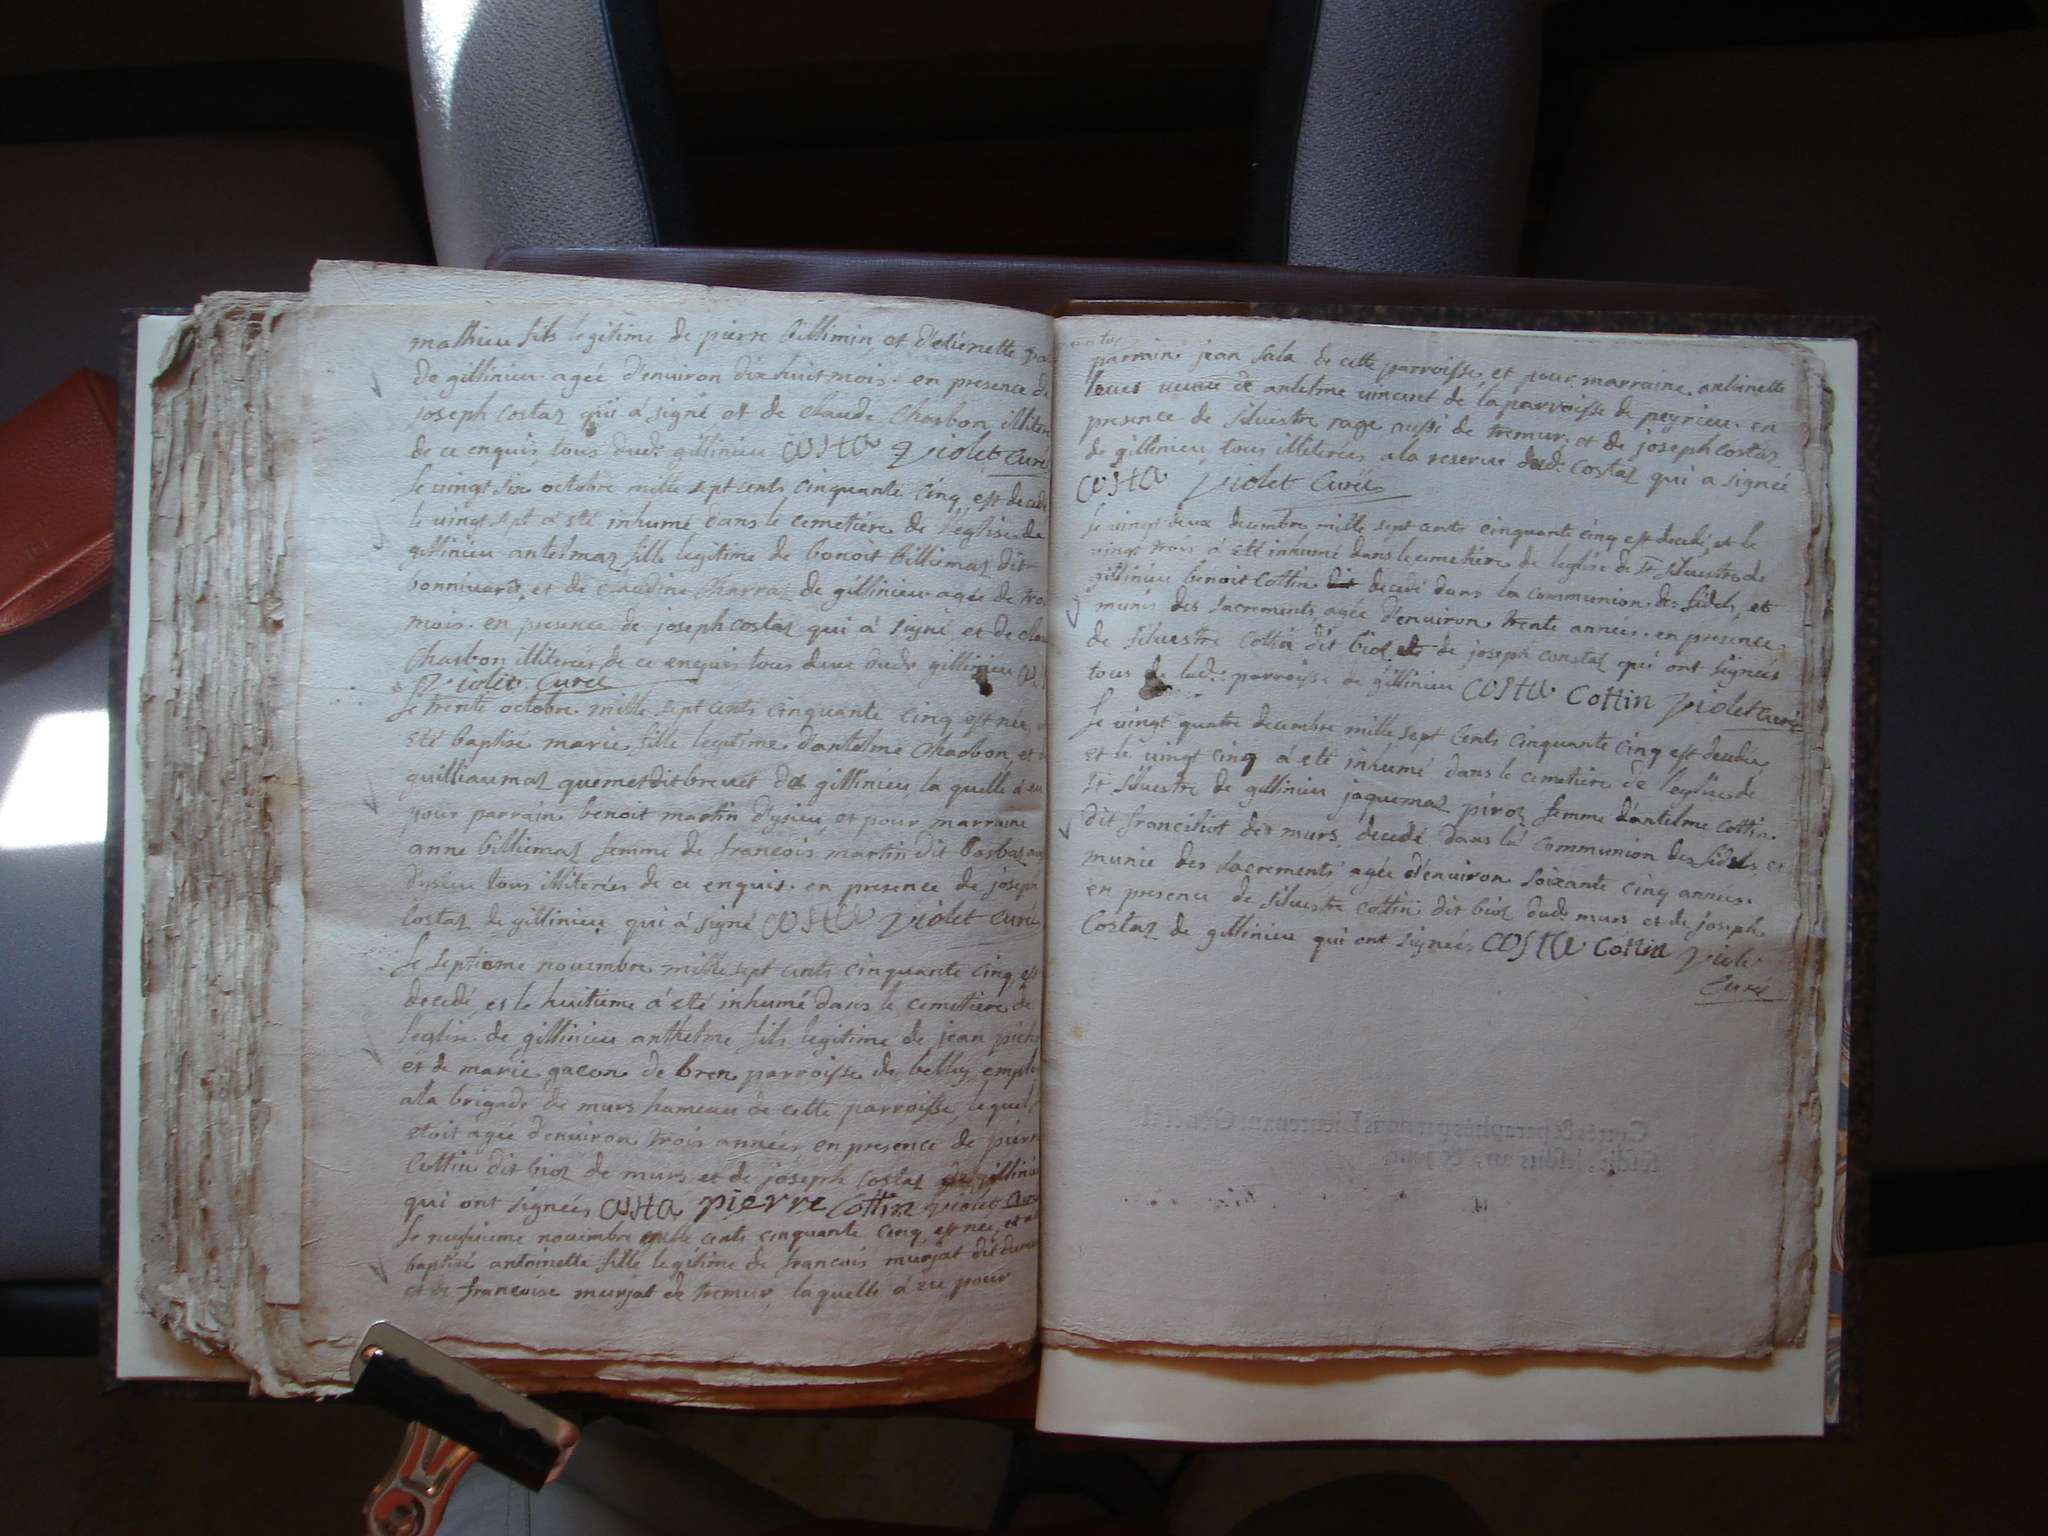 mathieu fils legitime de pierre billimin, et d'etienette
de gillinieu agée d'environ dix huit mois. en presence de
joseph costaz qui à signé et de claude Charbon illiter
de ce enquis tous dud. gillinieu costa violet Curé
Le vingt six octobre mille sept cents cinquante cinq est decedé
le vingt sept à été inhumé dans le cemetiere de l'eglise de
gillinieu antelmaz fille legitime de benoit billiemaz dit
bonnivard, et de claudine Charraz de gillinieu agée de
mois. en presence de joseph costaz qui à signé et de
Charbon illiterés de ce enquis tous deux dud. gillinieu
violet Curé
Le trente octobre mille sept cents cinquante cinq est née,
été baptisé marie fille legitime d'antelme Charbon, et
guilliaumaz quemet dit brevet de gillinieu, la quelle à eu
pour parrain benoit martin d'ysieu, et pour marraine
anne billiemaz femme de francois martin dit
d'ysieu tous illiterés de ce enquis. en presence de joseph
Costaz de gillinieu qui à signé costa violet Curé
Le septieme novembre mille sept cents cinquante cinq est
decedé, et le huitieme à été inhumé dans le cemetiere de
l'eglise de gillinieu anthelme fils legitime de jean
et de marie gacon de bren parroisse de belley
a la brigade de murs hameau de cette parroisse, lequel
etoit agée d'environ trois années, en presence de pierre
Cottin dit bioz de murs et de joseph Costaz de gillinieu
qui ont signés costa pierre Cottin violet Curé
Le novembre mille cents cinquante cinq est née, et à
baptisé antoinette fille legitime de francois murjat dit
et de francoise murjat de tremur, la quelle à eu pour
parrain jean sala de cette parroisse, et pour marraine antoinette
veuve de antelme vincent de la parroisse de peyrieu. en
presence de silvestre rage aussi de tremur. et de joseph costaz
de gillinieu tous illiterés a la reserve dud. Costaz qui a signé
costa violet Curé
Le vingt deux decembre mille sept cents cinquante cinq est decedé, et le
vingt trois à été inhumé dans le cemetiere de l'eglise de St silvestre de
gillinieu benoit Cottin dit decedé dans la communion des fidels, et
munis des sacrements, agée d'environ trente années. en presence
de silvestre Cottin dit bioz et de joseph constaz qui ont signés
tous de lad. parroisse de gillinieu costa Cottin violet Curé
Le vingt quatre decembre mille sept cents cinquante cinq est decedée
et le vingt cinq à été inhumé dans le cemetiere de l'eglise de
St silvestre de gillinieu jaquemaz piroz femme d'antelme Cottin
dit de murs, decedé dans la communion des fidels, et
munie des sacrements agée d'environ soixante cinq années.
en presence de silvestre cottin dit bioz dud. murs et de joseph
Costaz de gillinieu qui ont signées costa Cottin violet
Curé